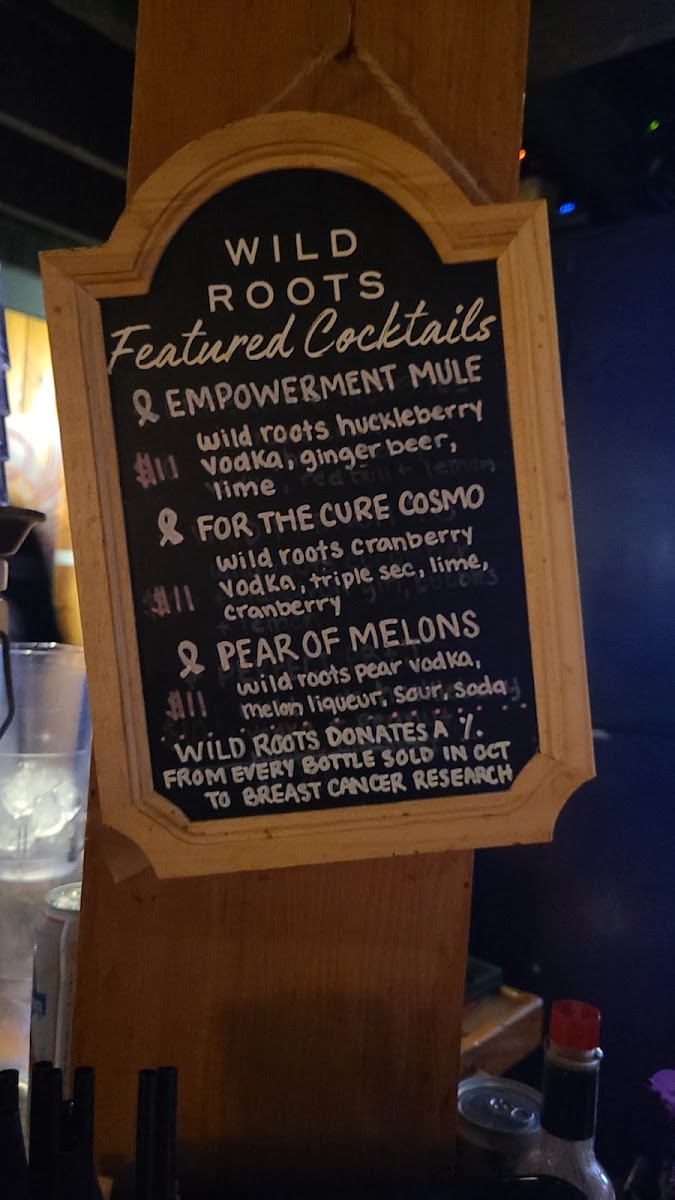 WILD
ROOTS
Featured Cocktails
EMPOWERMENT MULE
wild roots huckleberry
$11 vodka, ginger beer,
lime
FOR THE CURE COSMO
wild roots cranberry
$11 vodka, triple sec, lime,
cranberry
PEAR OF MELONS
wild roots pear vodka,
$11 melon liqueur, sour, soda
WILD ROOTS DONATES A %
FROM EVERY BOTTLE SOLD IN OCT
TO BREAST CANCER RESEARCH